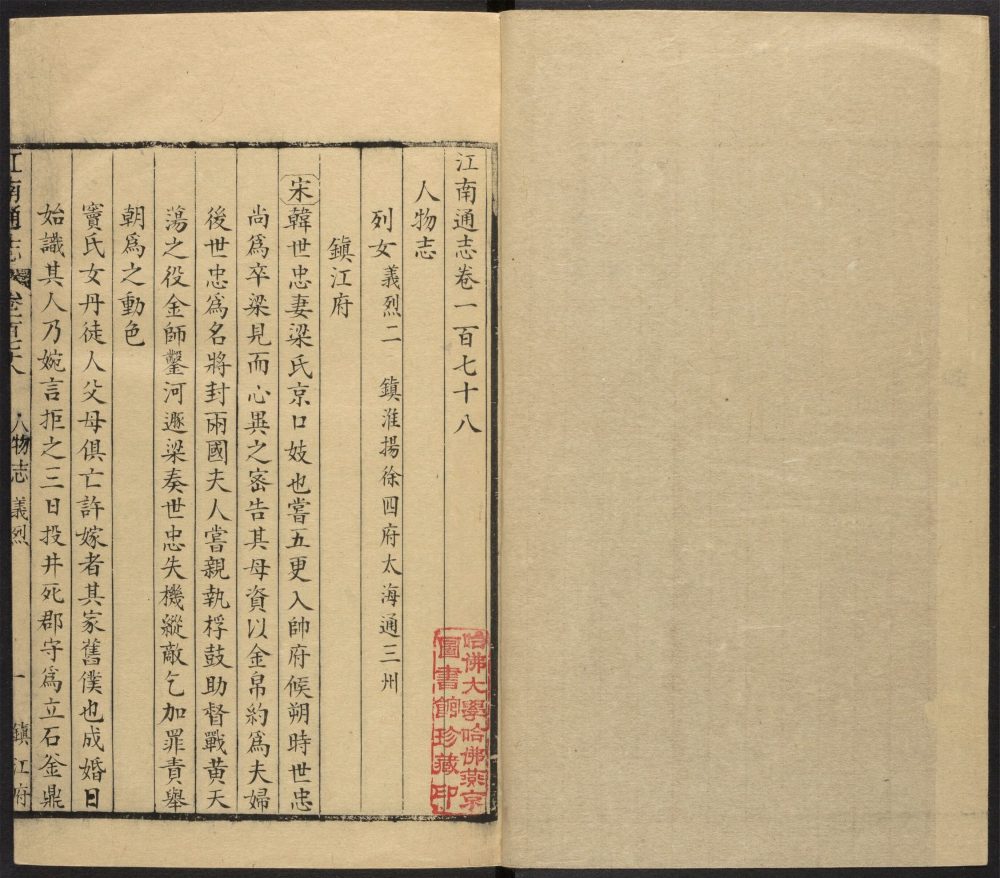 江南通志卷一百七十八
人物志
列女 義烈二 鎮淮揚徐四府太海通三州
鎮江府
宋韓世忠妻梁氏京口妓也嘗五更入帥府候朔時世忠
尚爲卒梁見而心異之密告其母資以金帛約爲夫婦
後世忠爲名將封兩國夫人嘗親執桴鼓助督戰黄天
蕩之役金師鑿河遯梁奏世忠失機縱敵乞加罪責舉
朝爲之動色
竇氏女丹徒人父母俱亡許嫁者其家舊僕也成婚日
始識其人乃婉言拒之三日投井死郡守爲立石釜鼎
江南通志 卷一百七十八 人物志 義烈 一 鎮江府
哈佛大學哈佛燕京
圖書館珍藏印